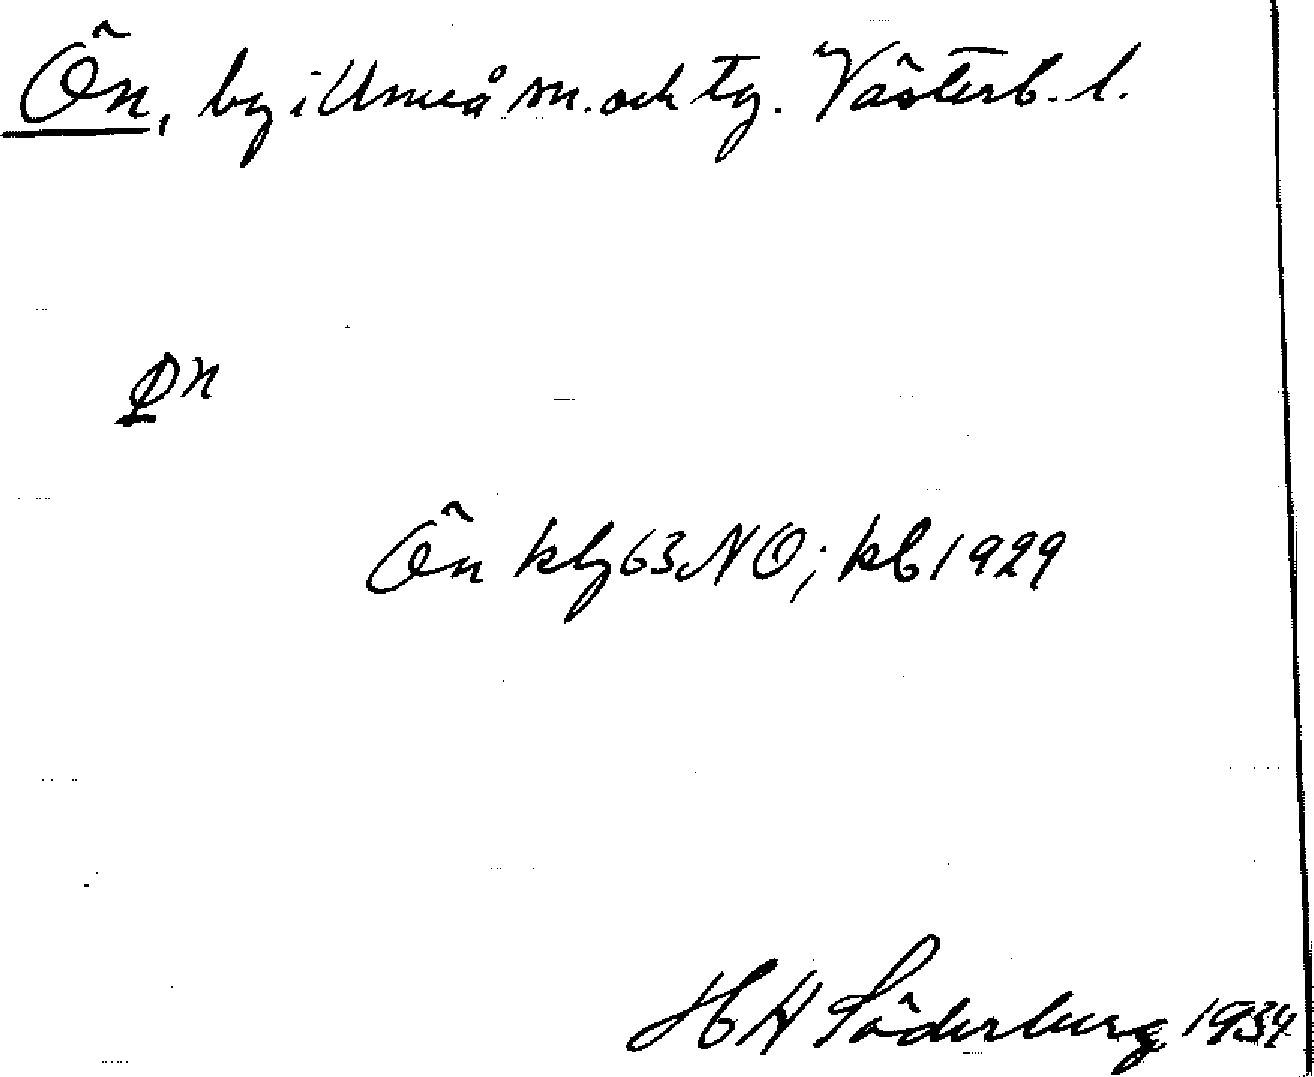 Ön, by i Umeå sn. och tg. Västerb. l.
Øn
Ön kbl 63 NO; kb 1929
H H Söderberg 1934